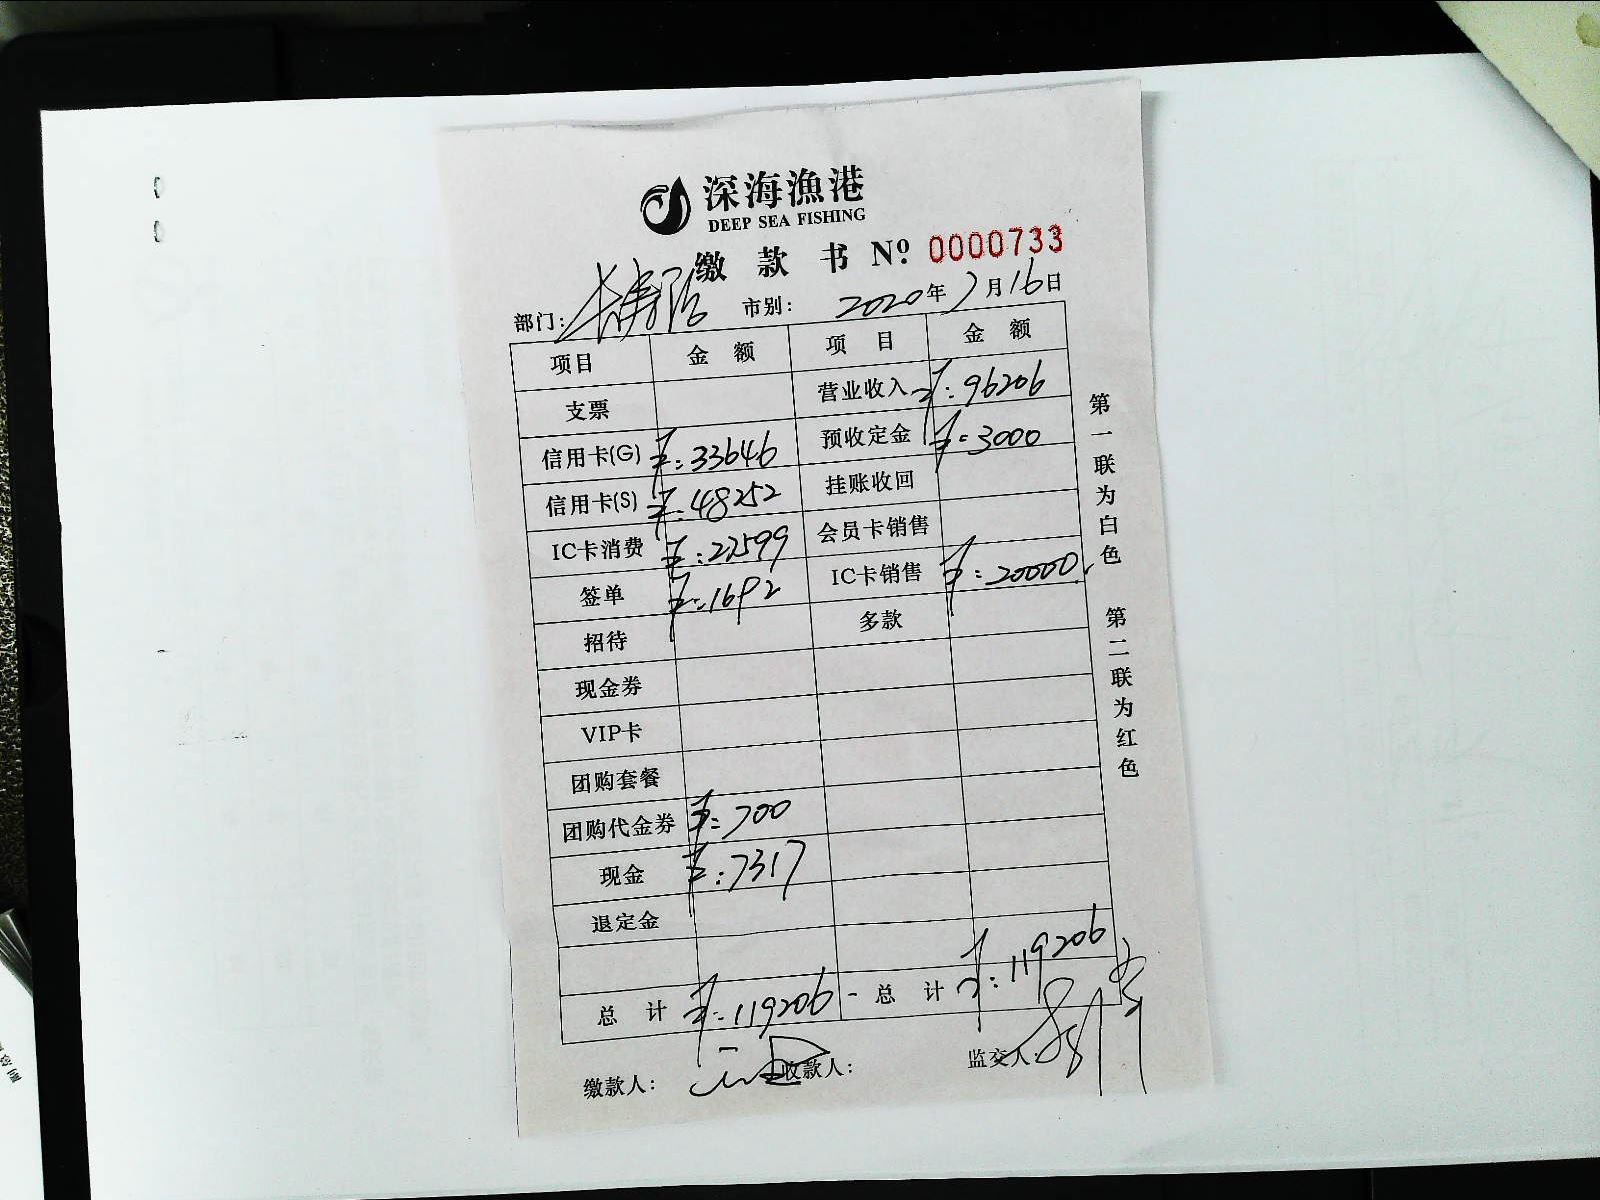 深海漁港
DEEP SEA FISHING
缴款书 Nº: 0000733
部门: 长寿路 市别: 2020年7月16日
项目 金额 项目 金额
支票 营业收入 ¥:96206
信用卡(G) ¥:33646 预收定金 ¥:3000
信用卡(S) ¥:48252 挂账收回
IC卡消费 ¥:27599 会员卡销售
签单 ¥:1692 IC卡销售 ¥:20000
招待 多款
现金券
VIP卡
团购套餐
团购代金券 ¥:700
现金 ¥:7317
退定金
总计 ¥:119206 总计 ¥:119206
缴款人: 收款人: 监交人:
第一联为白色 第二联为红色